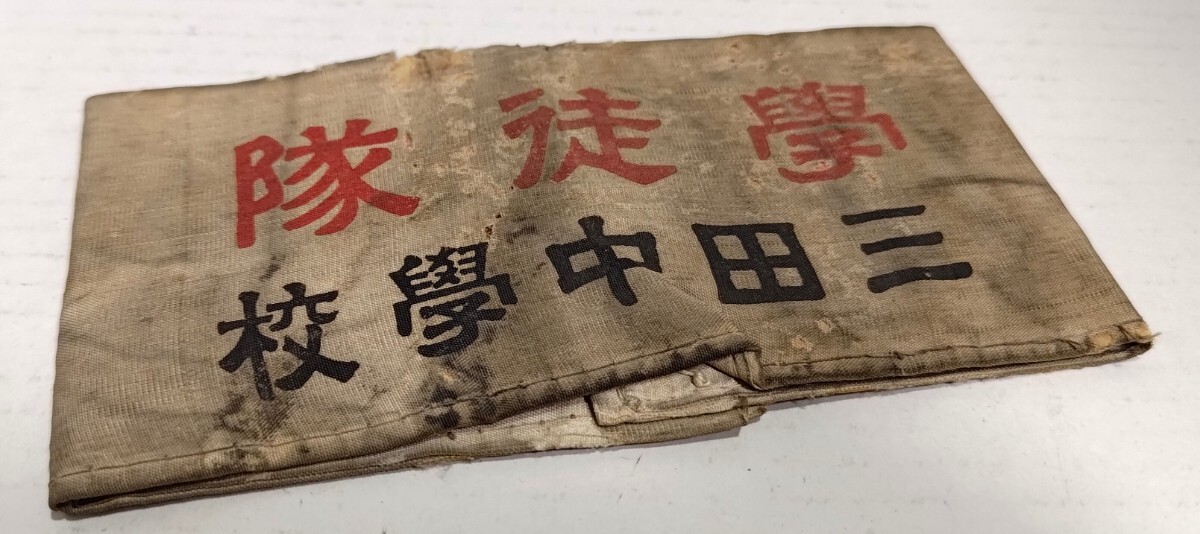 學徒隊
三田中學校